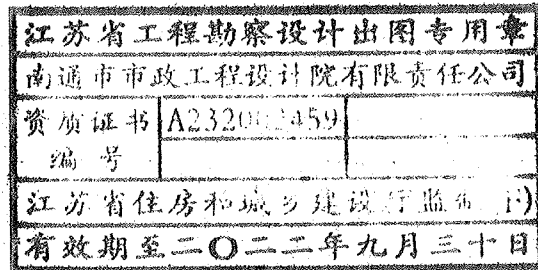 江苏省工程勘察设计出图专用章
南通市市政工程设计院有限责任公司
资质证书 A232
编号
江苏省住房和城乡建设厅监制
有效期至二〇二二年九月三十日